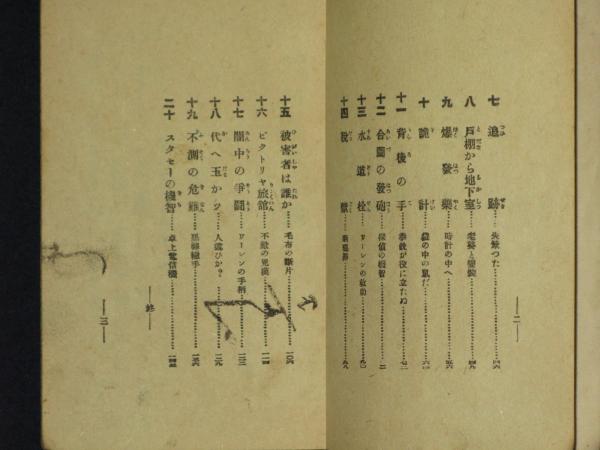 七 追跡……失策つた……四六
八 戸棚から地下室……老婆と警官……四九
九 爆發藥……時計の中へ……五六
十 詭計……袋の中の鼠だ……六一
十一 背後の手……拳銃が役に立たぬ……七一
十二 合圖の發砲……探偵の機智……
十三 水道栓……ドーレンの救助……九〇
十四 脱獄……九八
―二―
十五 被害者は誰か……毛布の斷片……一〇六
十六 ビクトリヤ旅館……不敵の兇漢……一一四
十七 闇中の爭鬪……ドーレンの手柄……一二三
十八 代へ玉かッ……人違ひか?……一二九
十九 不測の危難……一三六
二十 スタセーの機智……卓上電信機……一四四
―終―
―三―